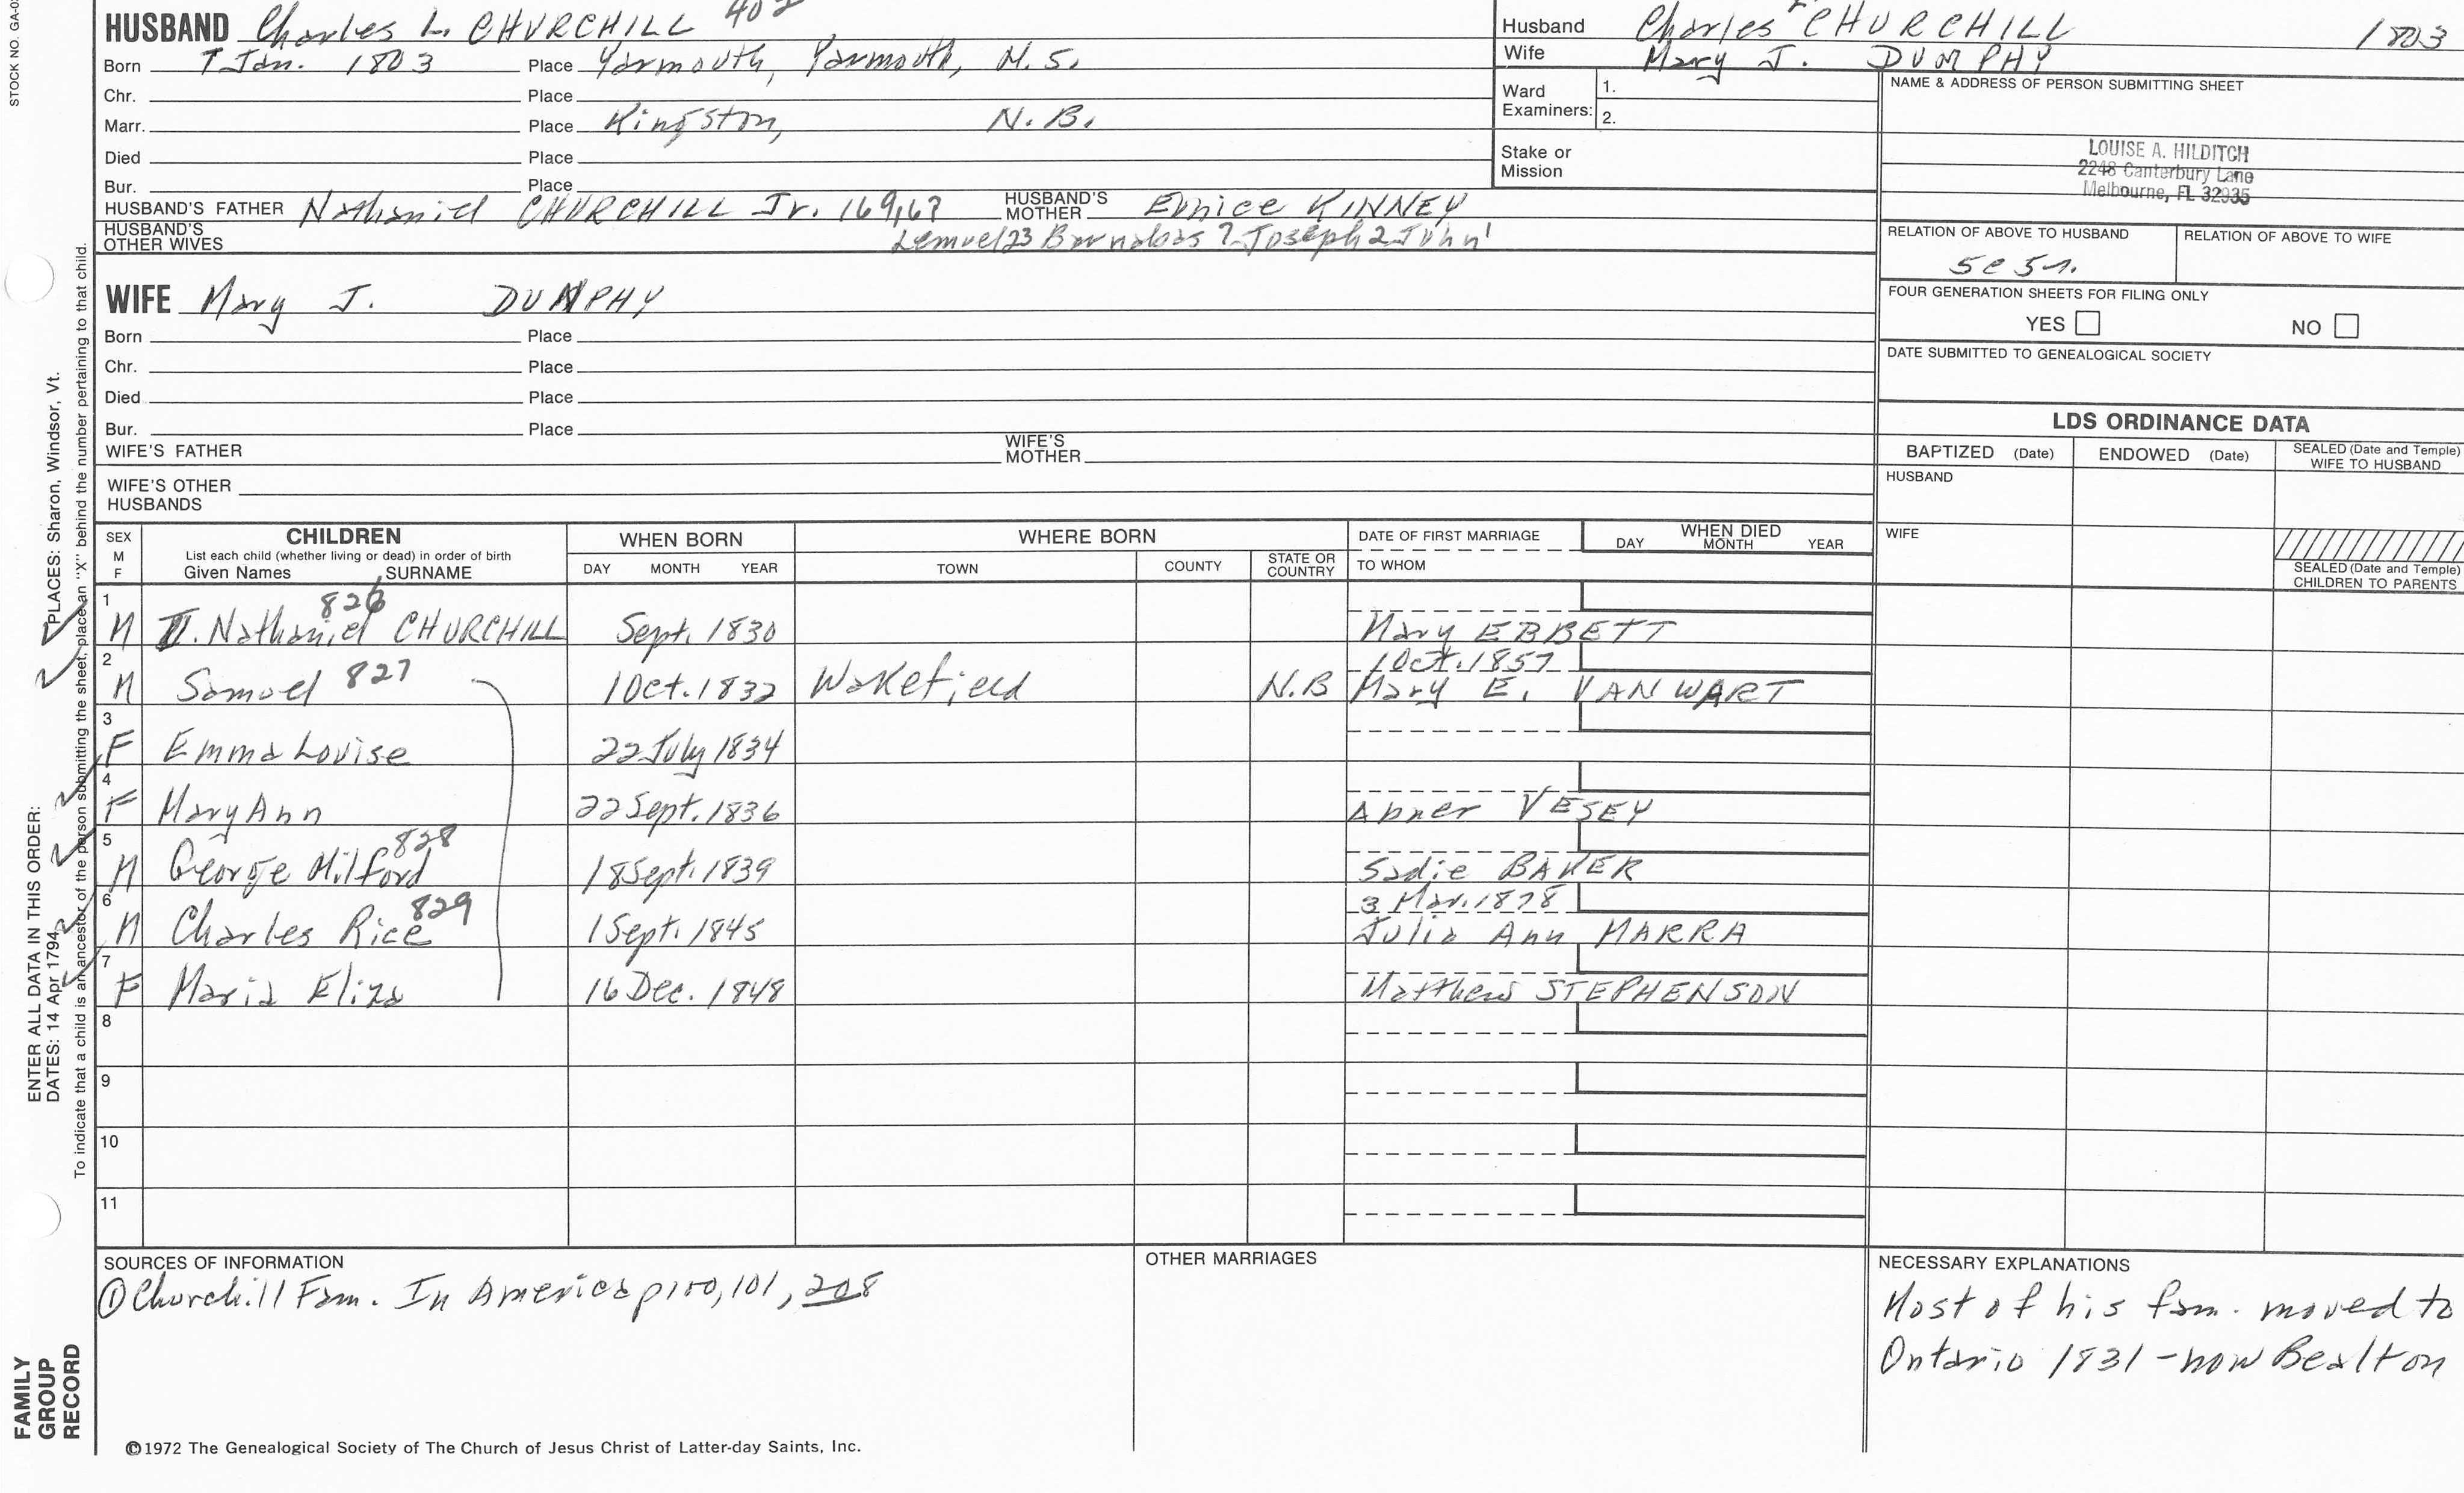 STOCK NO. GA-0
HUSBAND Charles L. CHURCHILL 402
Born 7 Jan. 1803 Place Yarmouth, Yarmouth, N.S.
Chr. Place
Marr. Place Kingston, N.B.
Died Place
Bur. Place
HUSBAND'S FATHER Nathaniel CHURCHILL Jr. 169,67 HUSBAND'S MOTHER Eunice KINNEY
HUSBAND'S OTHER WIVES Lemuel 23 Barnabas 7 Joseph 2 John 1
Husband Charles L CHURCHILL 1803
Wife Mary J. DUMPHY
Ward Examiners: 1.
2.
Stake or Mission
NAME & ADDRESS OF PERSON SUBMITTING SHEET
LOUISE A. HILDITCH
2248 Canterbury Lane
Melbourne, FL 32935
RELATION OF ABOVE TO HUSBAND RELATION OF ABOVE TO WIFE
FOUR GENERATION SHEETS FOR FILING ONLY
YES NO
DATE SUBMITTED TO GENEALOGICAL SOCIETY
WIFE Mary J. DUMPHY
Born Place
Chr. Place
Died Place
Bur. Place
WIFE'S FATHER WIFE'S MOTHER
WIFE'S OTHER HUSBANDS
LDS ORDINANCE DATA
BAPTIZED (Date) ENDOWED (Date) SEALED (Date and Temple) WIFE TO HUSBAND
HUSBAND
WIFE
SEALED (Date and Temple) CHILDREN TO PARENTS
SEX M F
CHILDREN
List each child (whether living or dead) in order of birth
Given Names SURNAME
WHEN BORN
DAY MONTH YEAR
WHERE BORN
TOWN COUNTY STATE OR COUNTRY
DATE OF FIRST MARRIAGE
TO WHOM
WHEN DIED
DAY MONTH YEAR
1 M Nathaniel 826 CHURCHILL Sept. 1830 Mary EBBETT
2 M Samuel 827 1 Oct. 1832 Wakefield N.B 1 Oct. 1857 Mary E. VANWART
3 F Emma Louise 22 July 1834
4 F Mary Ann 22 Sept. 1836 Abner VESEY
5 M George Milford 828 18 Sept. 1839 Sadie BAKER
6 M Charles Rice 829 1 Sept. 1845 3 Mar. 1878 Julia Ann MARRA
7 F Maria Eliza 16 Dec. 1848 Matthew STEPHENSON
8
9
10
11
SOURCES OF INFORMATION
① Churchill Fam. In America p 100, 101, 208
OTHER MARRIAGES
NECESSARY EXPLANATIONS
Most of his fam. moved to
Ontario 1831 - now Bealton
©1972 The Genealogical Society of The Church of Jesus Christ of Latter-day Saints, Inc.
ENTER ALL DATA IN THIS ORDER:
DATES: 14 Apr 1794 PLACES: Sharon, Windsor, Vt.
To indicate that a child is an ancestor of the person submitting the sheet, place an "X" behind the number pertaining to that child.
FAMILY
GROUP
RECORD